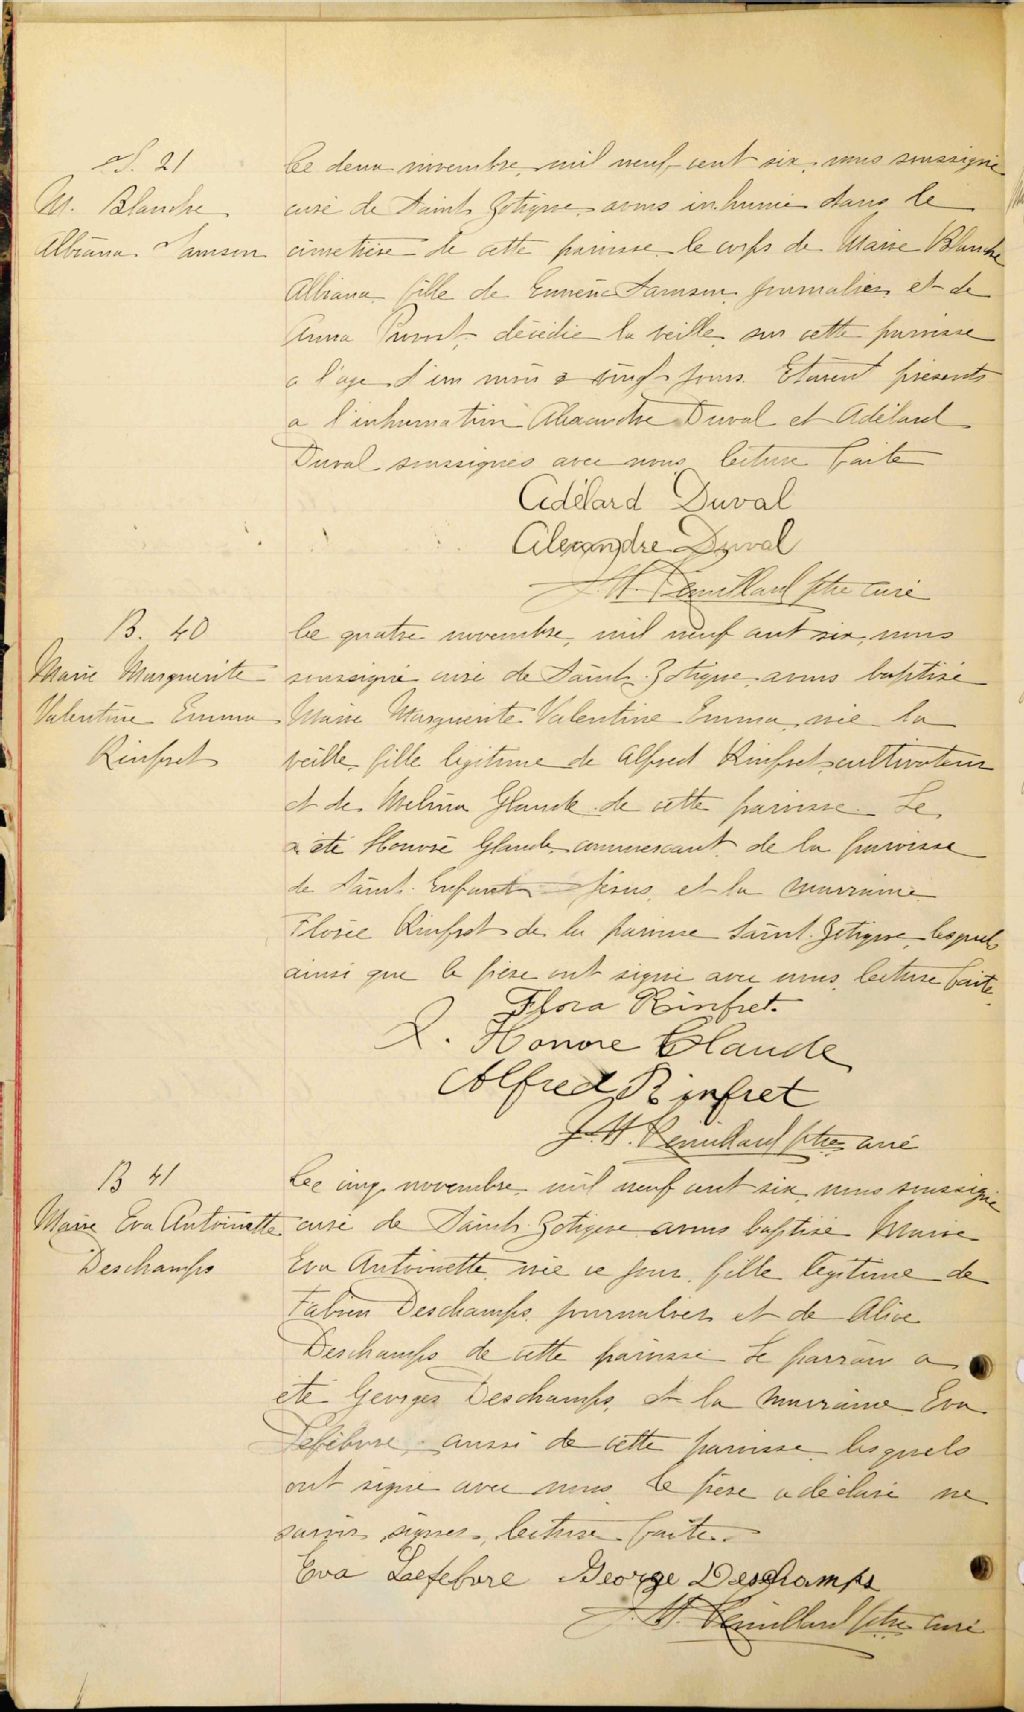 S. 21
M. Blanche
Albiana Samson
Le deux novembre, mil neuf cent six, nous soussigné
curé de Saint Zotique, avons inhumé dans le
cimetière de cette paroisse le corps de Marie Blanche
Albiana, fille de Samson, journalier et de
Anna décédée la veille sur cette paroisse
a l'age d'un mois & vingt jours. Etaient présents
a l'inhumation Alexandre Duval et Adélard
Duval soussignés avec nous, lecture faite
Adélard Duval
Alexandre Duval
J. H. Remillard ptre curé
B. 40
Marie Marguerite
Valentine Emma
Rinfret
Le quatre novembre, mil neuf cent six, nous
soussigné curé de Saint Zotique, avons baptisé
Marie Marguerite Valentine Emma, née la
veille, fille légitime de Alfred Rinfret, cultivateur
et de Melina Glaude de cette paroisse. Le
a été Honoré Glaude, commercant de la paroisse
de Saint Enfant Jésus, et la marraine
Florée Rinfret de la paroisse Saint Zotique, lesquels
ainsi que le père ont signé avec nous, lecture faite.
Flora Rinfret.
J. Honore Glaude
Alfred Rinfret
J. H. Remillard ptre curé
B 41
Marie Eva Antoinette
Deschamps
Le cinq novembre, mil neuf cent six, nous soussigné
curé de Saint Zotique avons baptisé Marie
Eva Antoinette, née ce jour, fille légitime de
Fabien Deschamps, journalier et de Alice
Deschamps de cette paroisse Le parrain a
été Georges Deschamps, et la marraine Eva
Lefebvre, aussi de cette paroisse, lesquels
ont signé avec nous, le père a déclaré ne
savoir signer, lecture faite.
Eva Leefebvre George Deschamps
J. H. Remillard ptre curé